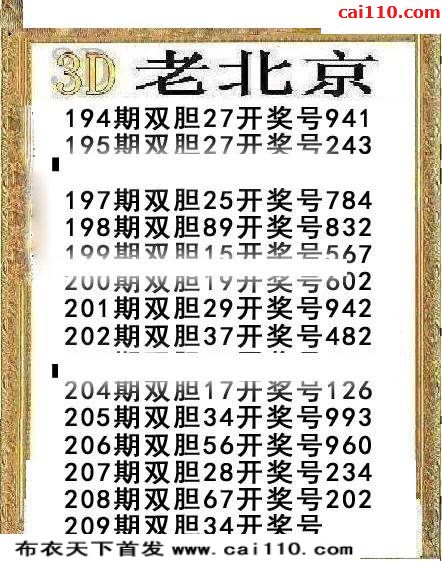 cai110.com
3D 老北京
194期双胆27开奖号941
195期双胆27开奖号243
197期双胆25开奖号784
198期双胆89开奖号832
199期双胆15开奖号567
200期双胆19开奖号602
201期双胆29开奖号942
202期双胆37开奖号482
204期双胆17开奖号126
205期双胆34开奖号993
206期双胆56开奖号960
207期双胆28开奖号234
208期双胆67开奖号202
209期双胆34开奖号
布衣天下首发 www.cai110.com